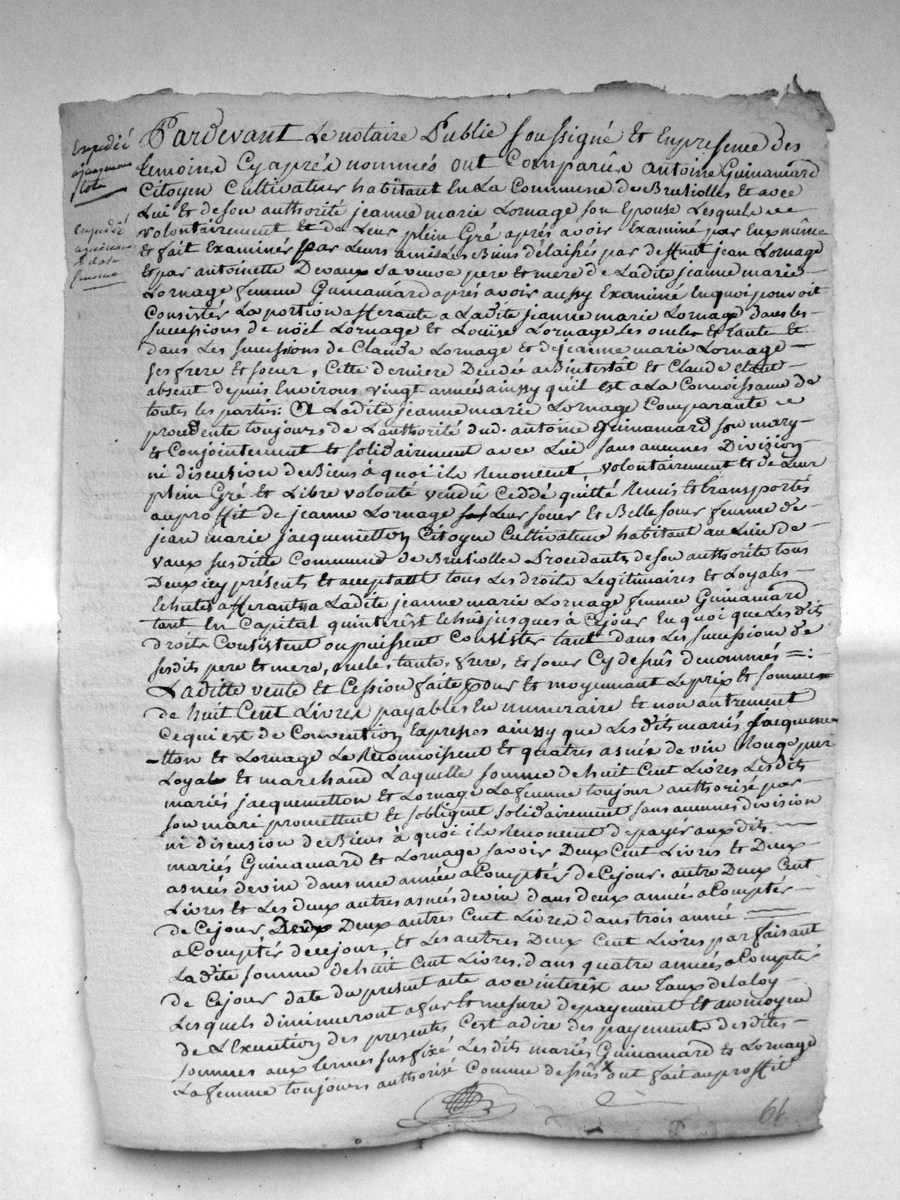 Expedié
a jacqueme
tton
Expedié
Pardevant Le notaire Public soussigné et En presence des
temoins Cy aprés nommés ont Comparûs antoine Guinamard
Citoyen Cultivateur habitant En La Commune de Brusiolles et avec
Lui et de son authorité jeanne marie Lornage son Epouse Lesquels
volontairement et de Leur plein Gré aprés avoir Examiné par Eux même
et fait Examinés par Leurs amis Les Biens délaissés par deffunt jean Lornage
et par antoinette Devaux sa veuve pere et mere de Ladite jeanne marie
Lornage femme Guinamard aprés avoir aussy Examiné En quoi pouvoit
Consister La portion afferante a Ladite jeanne marie Lornage dans les
successions de nöel Lornage et Loüise Lornage Les oncle et tante et
dans Les successions de Claude Lornage et de jeanne marie Lornage
ses frere et soeur, Cette derniere Decedée abintestat et Claude Etant
absent depuis Environs vingt années ainssy quil est a La Connoissance de
toutes les parties: Ladite jeanne marie Lornage Comparante
procedente toujours de L'authorité dud. antoine Guinamard son mary
et Conjointement et solidairement avec Lui sans aucunes Division
ni discusion de Biens à quoi ils Renoncent volontairement et de Leur
plein Gré et Libre volonté vendû Ceddé quitté Remis et transportés
au proffit de jeanne Lornage Leur soeur et Belle soeur femme de
jean marie jacquemetton Citoyen Cultivateur habitant au Lieu de
vaux susditte Commune de Brusiolles Procedante de son authorité tous
Deux icy présents et acceptant tous Les droits Legitimaires et Loyales
Echutes afferants a Ladite jeanne marie Lornage femme Guinamard
tant En Capital quinterest Echus jusques à Cejour En quoi que Lesdits
droits Consistent ou puissent Consister tant dans Les successions de
sesdits pere et mere, oncle, tante, frere, et soeur Cy dessûs denommés =:
Laditte vente et Cession faite pour et moyennant Le prix et somme
de huit Cent Livres payables En numeraire et non autrement
Ce qui est de Convention Expresses ainssy que Lesdits mariés jacqueme
-tton et Lornage Le Reconnoissent et quatres asnée de vin Rouge pur
Loyal et marchand Laquelle somme de huit Cent Livres Lesdits
mariés jacquemetton et Lornage La femme toujour authorisé par
son mari promettent et sobligent solidairement sans aucunes division
ni discusion de Biens à quoi ils Renoncent de payér aux dits
mariés Guinamard et Lornage savoir Deux Cent Livres et Deux
asnés de vin dans une année a Comptér de Cejour. autre Deux Cent
Livres et Les deux autres asnés de vin dans deux années a Comptér
de Cejour Deux autres Cent Livres dans trois année
a Comptér de cejour, et Les autres Deux Cent Livres parfaisant
Ladite somme de huit Cent Livres, dans quatre années a Comptér
de Cejour date du présent acte avec interêst au taux de la loy
Lesquels diminueront a fur et mesure de payement et au moyen
de L'Execution des presentes C'est adire des payements desdites
sommes aux termes sus fixé Lesdits mariés Guinamard et Lornage
La femme toujours authorisé Comme dessûs ont fait au proffit
61